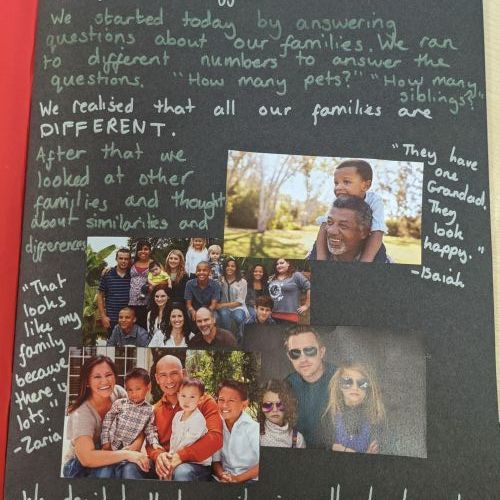 We started today by answering
questions about our families. We ran
to different numbers to answer the
questions. "How many pets?" "How many
siblings?"
We realised that all our families are
DIFFERENT.
After that we
looked at other
families and thought
about similarities and
differences
"They have
one
Grandad.
They
look
happy."
-Isaiah
"That
looks
like my
family
because
there is
lots."
-Zaria